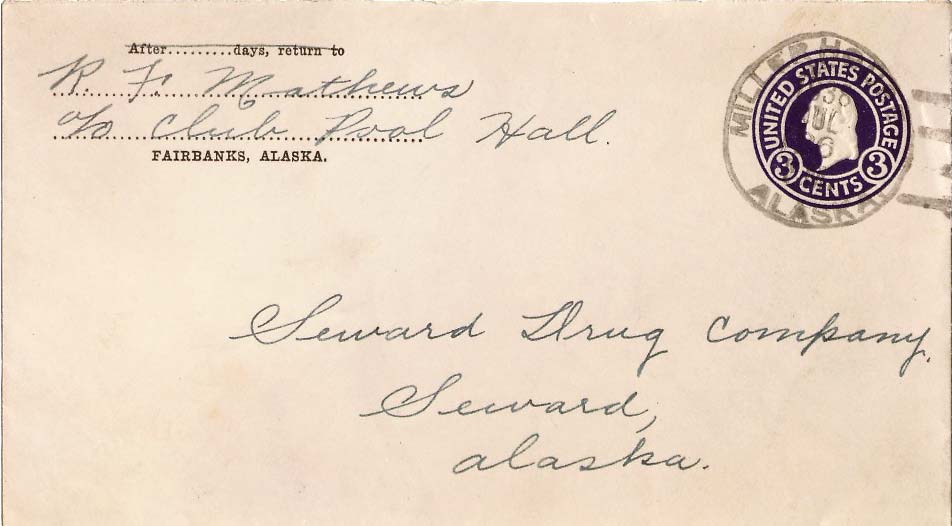 After.........days, return to
R. F. Mathews
c/o Club Pool Hall.
FAIRBANKS, ALASKA.
MILLER
ALASKA
UNITED STATES POSTAGE
3 CENTS 3
JUL
6
Seward Drug Company,
Seward,
Alaska.